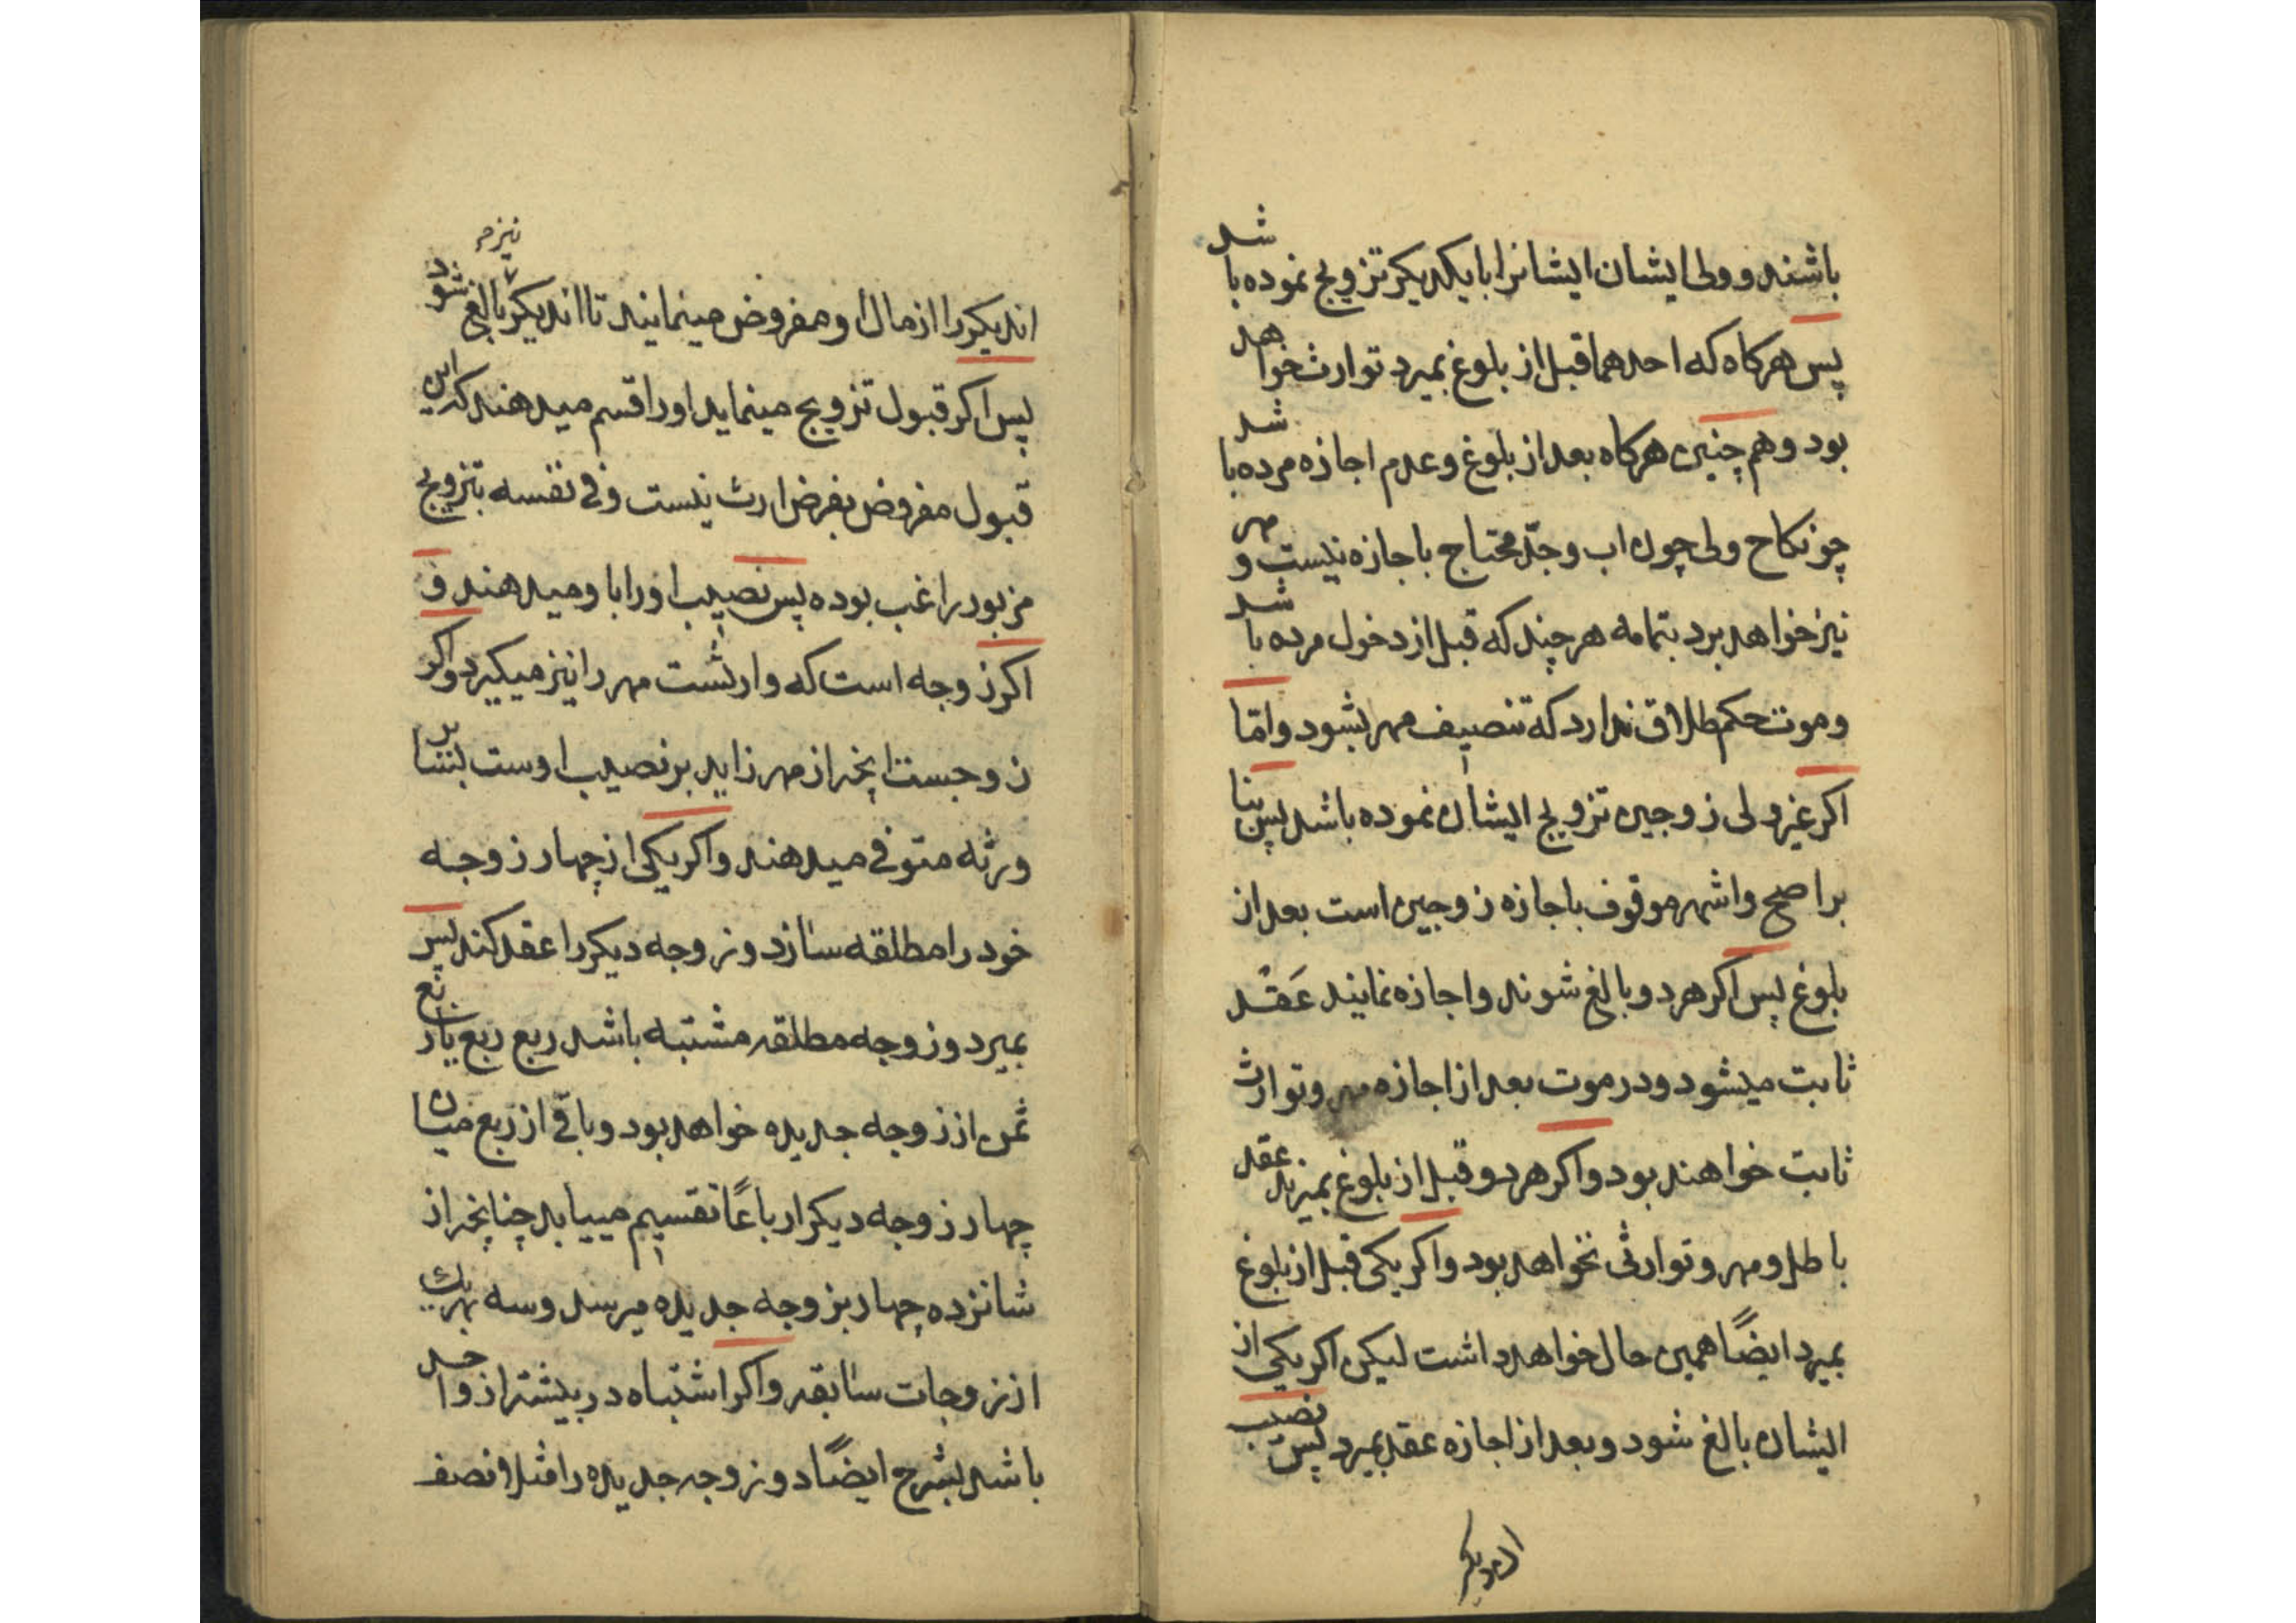 باشند و ولی ایشان ایشانرا با یکدیکر تزویج نموده باشد
پس هرکاه که احدهما قبل از بلوغ بمیرد توارث خواهد
بود و هم چنین هرکاه بعد از بلوغ و عدم اجازه مرده باشد
چو نکاح ولی چون اب و جدّ محتاج باجازه نیست و مهر
نیز خواهد برد بتمامه هر چند که قبل از دخول مرده باشد
و موت حکم طلاق ندارد که تنصیف مهر بشود و امّا
اکر غیر ولی زوجین تزویج ایشان نموده باشد پس بنا
بر اصح و اشهر موقوف باجازه زوجین است بعد از
بلوغ پس اکر هر دو بالغ شوند و اجازه نمایند عَقد
ثابت میشود و در موت بعد از اجازه مهر و توارث
ثابت خواهند بود و اکر هر دو قبل از بلوغ بمیرند عقد
باطل و مهر و توارثی نخواهد بود و اکر یکی قبل از بلوغ
بمیرد ایضًا همین حال خواهد داشت لیکن اکر یکی از
ایشان بالغ شود و بعد از اجازه عقد بمیرد پس نصیب
اندیکر
اندیکر را از مال او مفروض مینمایند تا اندیکر نیز بالغ شود
پس اکر قبول تزویج مینماید او را قسم میدهند که این
قبول مفروض بفرض ارث نیست و فی نفسه بتزویج
مزبور راغب بوده پس نصیب او را باو میدهند و
اکر زوجه است که وارثست مهر را نیز میکیرد و اکر
زوجست انچه از مهر زاید بر نصیب اوست بسایر
ورثه متوفی میدهند و اکر یکی از چهار زوجه
خود را مطلقه سازد و زوجه دیکر را عقد کند پس
بمیرد و زوجه مطلقه مشتبه باشد ربع ربع یا ربع
ثمن از زوجه جدیده خواهد بود و باقی از ربع میان
چهار زوجه دیکر ارباعًا تقسیم مییابد چنانچه از
شانزده چهار بزوجه جدیده میرسد و سه بهر یک
از زوجات سابقه و اکر اشتباه در بیشتر از واحد
باشد بشرح ایضًا دو زوجه جدیده را مثلا نصف